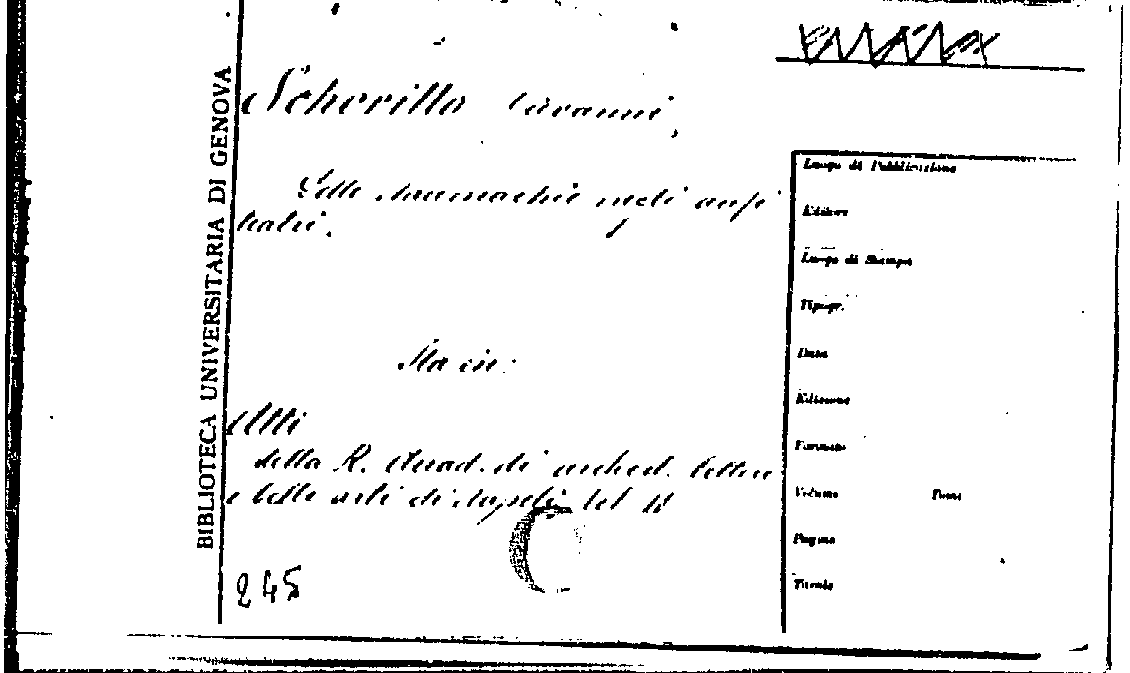 BIBLIOTECA UNIVERSITARIA DI GENOVA
Scherillo Giovanni,
Delle naumachie negli anfi
teatri.
Sta in:
Atti
della R. Accad. di archeol. lettere
e belle arti di Napoli Vol.
245
Luogo di Pubblicazione
Editore
Luogo di Stampa
Tipogr.
Data
Edizione
Formato
Volume Tomi
Pagine
Tavole